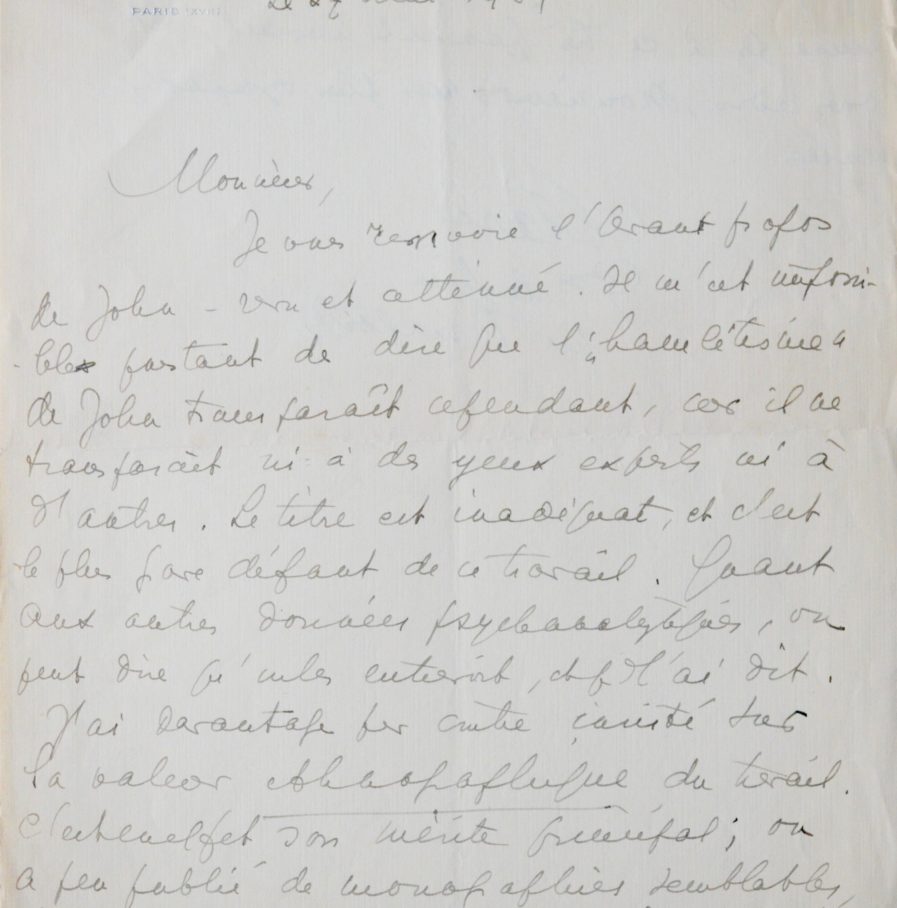 PARIS (XVIe)
Le 27
Monsieur,
Je vous renvoie l'Avant propos
de John – revu et atténué. Il m'est impossi-
-ble pourtant de dire que l'"hamlétisme"
de John transparaît cependant, car il ne
transparaît ni à des yeux experts ni à
d'autres. Le titre est inadéquat, et c'est
le plus grave défaut de ce travail. Quant
aux autres données psychanalytiques, on
peut dire qu'elles y entrevoit, et je l'ai dit.
J'ai davantage par contre insisté sur
la valeur ethnographique du travail.
C'est en effet son mérite principal ; on
a peu publié de monographies semblables,